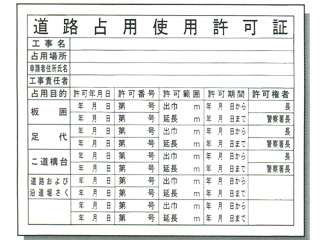 道路占用使用許可証
工事名
占用場所
申請者住所氏名
工事責任者
占用目的 許可年月日 許可番号 許可範囲 許可期間 許可権者
板囲 年月日 第号 出巾m 年月日から 長
年月日 第号 延長m 年月日まで 警察署長
足代 年月日 第号 出巾m 年月日から 長
年月日 第号 延長m 年月日まで 警察署長
こ道構台 年月日 第号 出巾m 年月日から 長
年月日 第号 延長m 年月日まで 警察署長
道路および 年月日 第号 出巾m 年月日から
沿道堀さく 年月日 第号 延長m 年月日まで
年月日 第号 出巾m 年月日から
年月日 第号 延長m 年月日まで